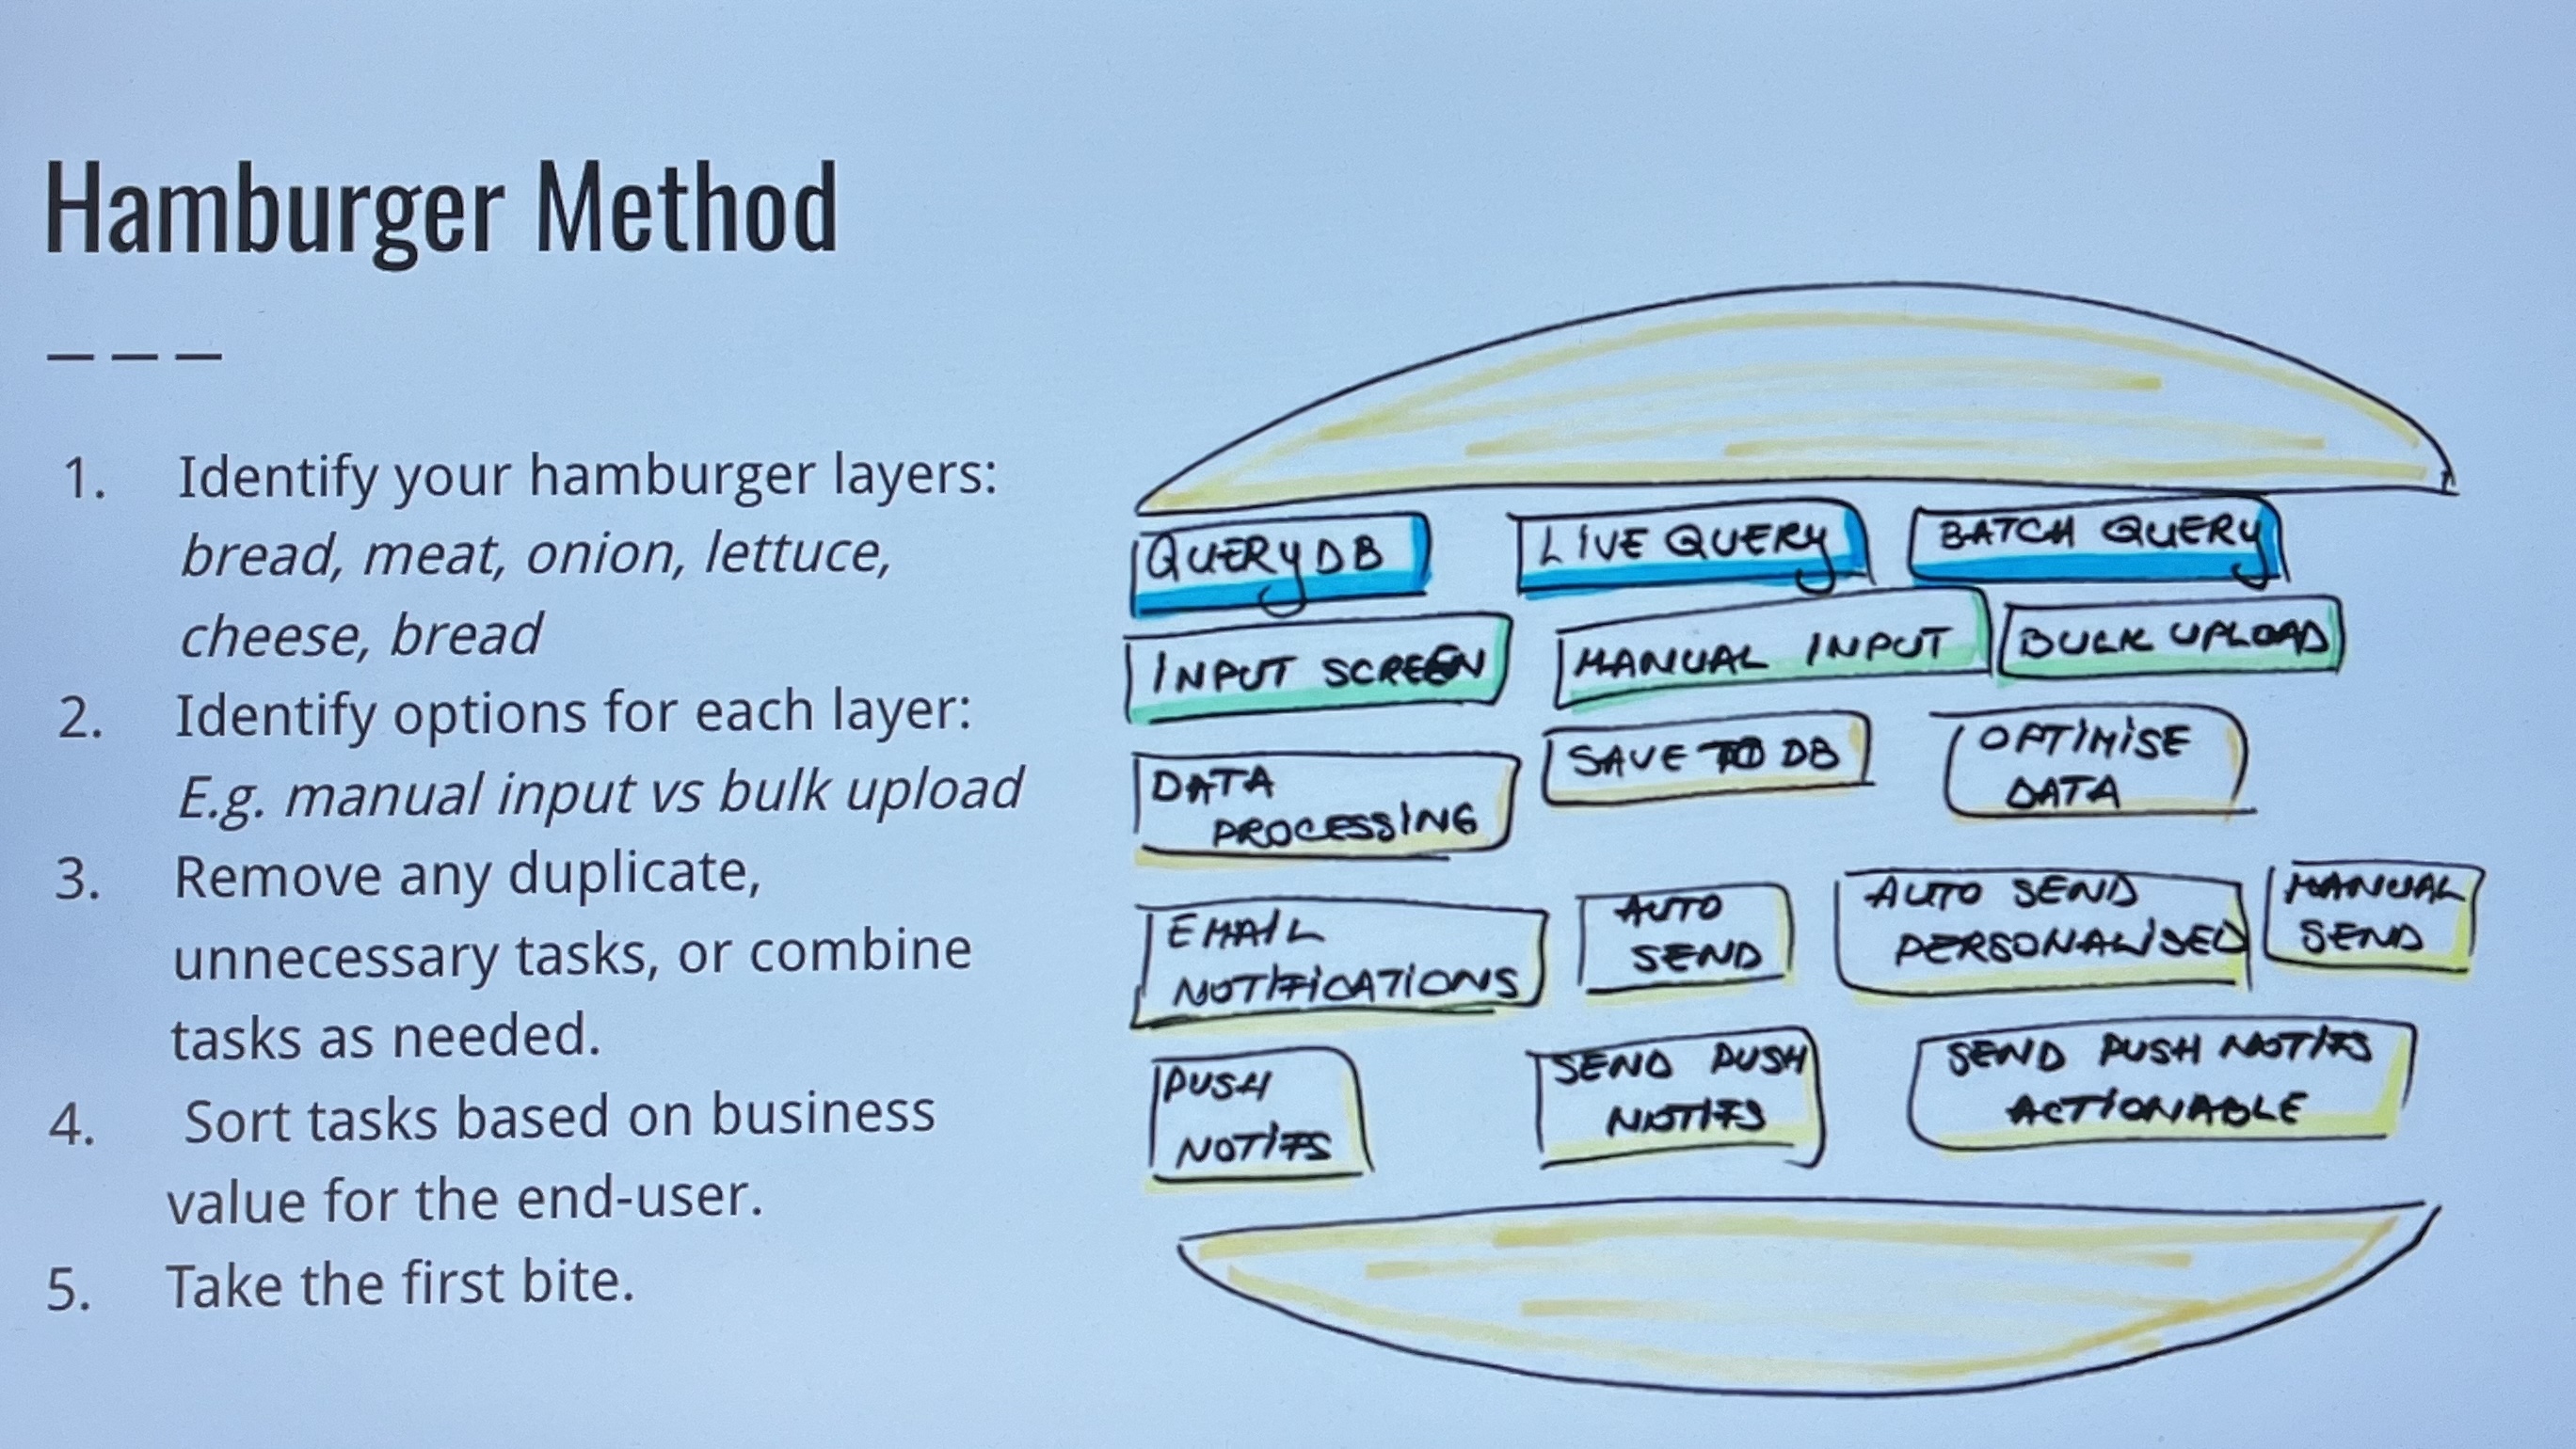 Hamburger Method
1. Identify your hamburger layers:
bread, meat, onion, lettuce,
cheese, bread
2. Identify options for each layer:
E.g. manual input vs bulk upload
3. Remove any duplicate,
unnecessary tasks, or combine
tasks as needed.
4. Sort tasks based on business
value for the end-user.
5. Take the first bite.
QUERY DB
LIVE QUERY
BATCH QUERY
INPUT SCREEN
MANUAL INPUT
BULK UPLOAD
DATA
PROCESSING
SAVE TO DB
OPTIMISE
DATA
EMAIL
NOTIFICATIONS
AUTO
SEND
AUTO SEND
PERSONALISED
MANUAL
SEND
PUSH
NOTIFS
SEND PUSH
NOTIFS
SEND PUSH NOTIFS
ACTIONABLE